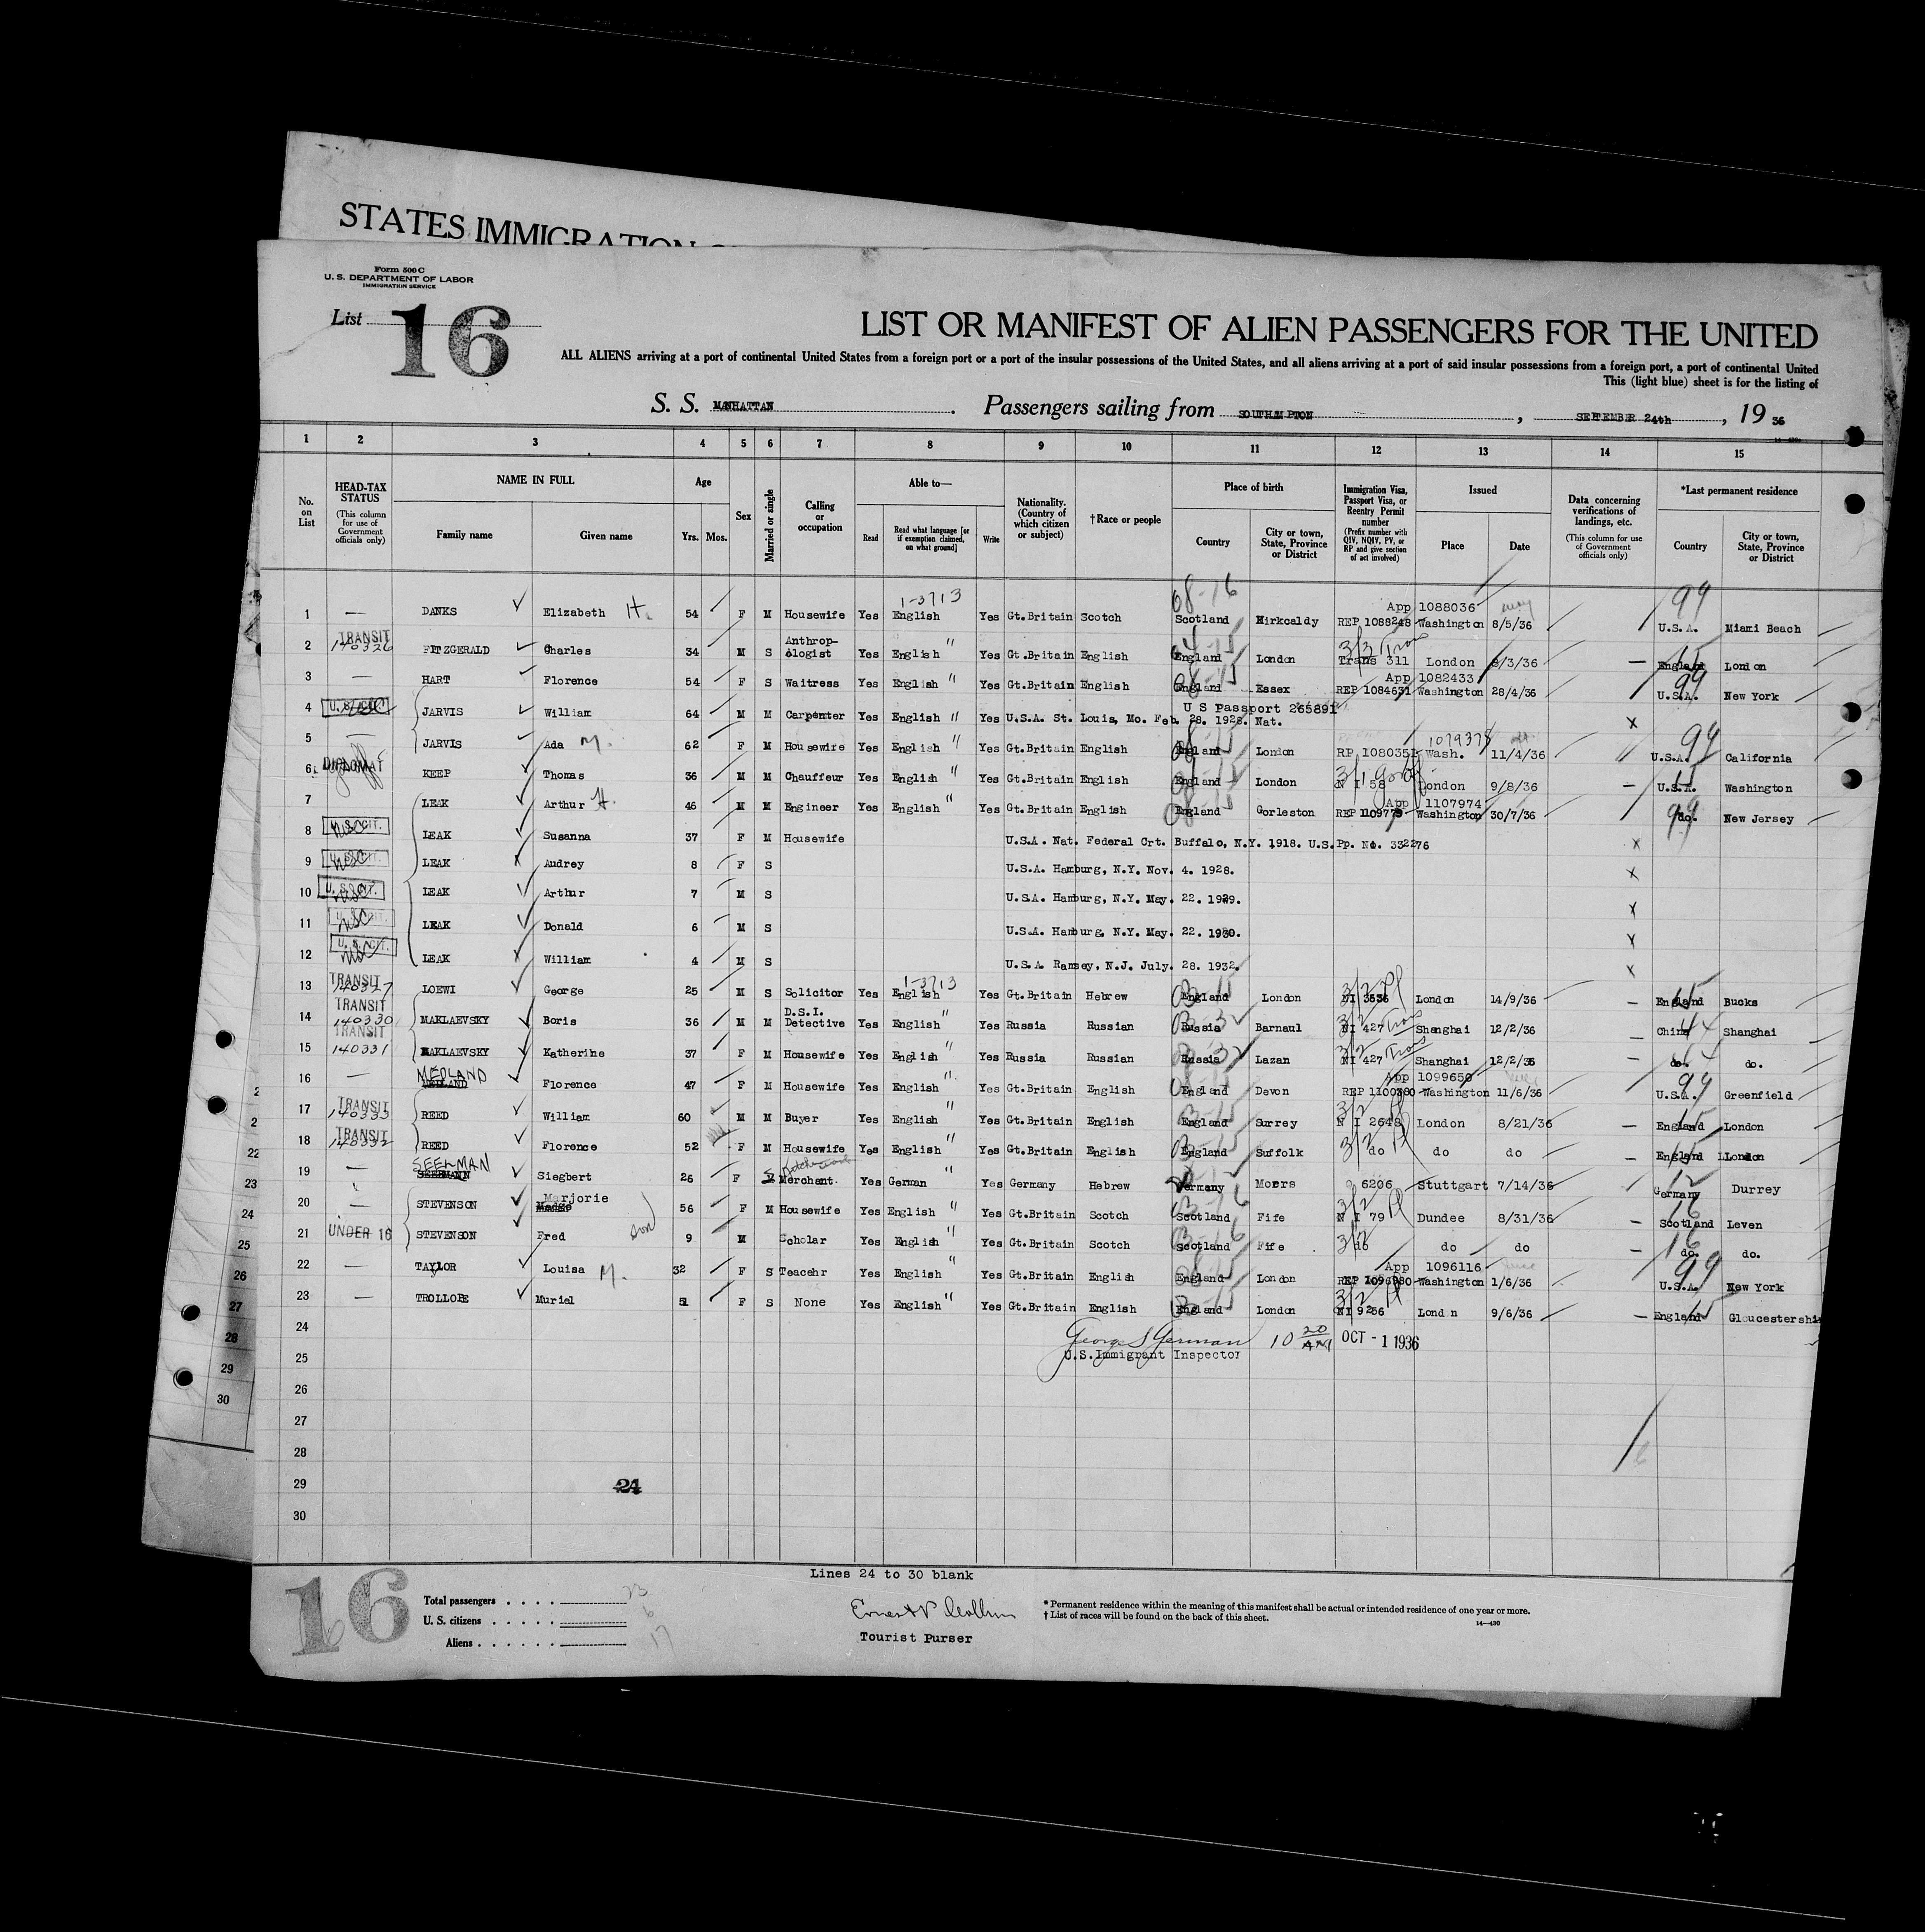 STATES IMMIGRATION
Form 500 C
U. S. DEPARTMENT OF LABOR
IMMIGRATION SERVICE
List 16
LIST OR MANIFEST OF ALIEN PASSENGERS FOR THE UNITED
ALL ALIENS arriving at a port of continental United States from a foreign port or a port of the insular possessions of the United States, and all aliens arriving at a port of said insular possessions from a foreign port, a port of continental United
This (light blue) sheet is for the listing of
S. S. MANHATTAN. Passengers sailing from SOUTHAMPTON, SEPTEMBER 24th, 19 36
1 2 3 4 5 6 7 8 9 10 11 12 13 14 15
No. on List
HEAD-TAX STATUS (This column for use of Government officials only)
NAME IN FULL
Family name Given name
Age Yrs. Mos.
Sex
Married or single
Calling or occupation
Able to—
Read Read what language [or if exemption claimed, on what ground] Write
Nationality. (Country of which citizen or subject)
†Race or people
Place of birth
Country City or town, State, Province or District
Immigration Visa, Passport Visa, or Reentry Permit number (Prefix number with QIV, NQIV, PV, or RP and give section of act involved)
Issued
Place Date
Data concerning verifications of landings, etc. (This column for use of Government officials only)
*Last permanent residence
Country City or town, State, Province or District
1-3713 68-16 App 1088036 99
1 — DANKS Elizabeth H. 54 F M Housewife Yes English Yes Gt.Britain Scotch Scotland Kirkcaldy REP 1088248 Washington 8/5/36 U.S.A. Miami Beach
2 TRANSIT 140326 FITZGERALD Charles 34 M S Anthrop-ologist Yes English " Yes Gt.Britain English England London 3/2 Trans 311 London 3/3/36 — England London
App 1082433
3 — HART Florence 54 F S Waitress Yes English " Yes Gt.Britain English England Essex REP 1084631 Washington 28/4/36 U.S.A. New York
U S Passport 265891
4 U.S. CIT. JARVIS William 64 M M Carpenter Yes English " Yes U.S.A. St. Louis, Mo. Feb. 28. 1928. Nat. X
5 — JARVIS Ada M. 62 F M Housewife Yes English " Yes Gt.Britain English England London RP 1080351 1079378 Wash. 11/4/36 U.S.A. California
6 DIPLOMAT KEEP Thomas 36 M M Chauffeur Yes English " Yes Gt.Britain English England London 3/1 N I 58 London 9/8/36 — U.S.A. Washington
App 1107974
7 LEAK Arthur H. 46 M M Engineer Yes English " Yes Gt.Britain English England Gorleston REP 1109779 Washington 30/7/36 do. New Jersey
8 U.S. CIT. LEAK Susanna 37 F M Housewife U.S.A. Nat. Federal Crt. Buffalo, N.Y. 1918. U.S.Pp. No. 332276 X
9 U.S. CIT. LEAK Audrey 8 F S U.S.A. Hamburg, N.Y. Nov. 4. 1928. X
10 U.S. CIT. LEAK Arthur 7 M S U.S.A. Hamburg, N.Y. May. 22. 1929. X
11 U.S. CIT. LEAK Donald 6 M S U.S.A. Hamburg, N.Y. May. 22. 1930. X
12 U.S. CIT. LEAK William 4 M S U.S.A. Ramsey, N.J. July. 28. 1932. X
1-3713
13 TRANSIT 140327 LOEWI George 25 M S Solicitor Yes English Yes Gt.Britain Hebrew England London 3/2 NI 3536 London 14/9/36 — England Bucks
14 TRANSIT 140330 MAKLAEVSKY Boris 36 M M D.S.I. Detective Yes English " Yes Russia Russian Russia Barnaul 3/2 NI 427 Trans Shanghai 12/2/36 — China Shanghai
15 TRANSIT 140331 MAKLAEVSKY Katherine 37 F M Housewife Yes English " Yes Russia Russian Russia Lazan 3/2 NI 427 Trans Shanghai 12/2/36 — do. do.
App 1099650
16 — MEDLAND Florence 47 F M Housewife Yes English " Yes Gt.Britain English England Devon REP 1100380 Washington 11/6/36 U.S.A. Greenfield
17 TRANSIT 140333 REED William 60 M M Buyer Yes English " Yes Gt.Britain English England Surrey 3/2 N I 2648 London 8/21/36 — England London
18 TRANSIT 140332 REED Florence 52 F M Housewife Yes English " Yes Gt.Britain English England Suffolk 3/2 do do do — England London
19 — SEELMAN Siegbert 26 F Merchant. Yes German " Yes Germany Hebrew Germany Moers 6206 Stuttgart 7/14/36 Germany Durrey
20 — STEVENSON Marjorie 56 F M Housewife Yes English " Yes Gt.Britain Scotch Scotland Fife 3/2 N I 79 Dundee 8/31/36 — Scotland Leven
21 UNDER 16 STEVENSON Fred son 9 M Scholar Yes English " Yes Gt.Britain Scotch Scotland Fife 3/2 do do do — do. do.
App 1096116
22 — TAYLOR Louisa M. 32 F S Teacehr Yes English " Yes Gt.Britain English England London REP 1096980 Washington 1/6/36 U.S.A. New York
23 — TROLLOPE Muriel 51 F S None Yes English " Yes Gt.Britain English England London 3/2 NI 9256 Lond n 9/6/36 — England Gloucestershi
24 George S German 10 20 AM OCT - 1 1936
25 U.S.Immigrant Inspector
26
27
28
29 24
30
22
23
24
25
26
27
28
29
30
Lines 24 to 30 blank
16
Total passengers 23
U. S. citizens 6
Aliens 17
Tourist Purser
* Permanent residence within the meaning of this manifest shall be actual or intended residence of one year or more.
† List of races will be found on the back of this sheet.
14—430